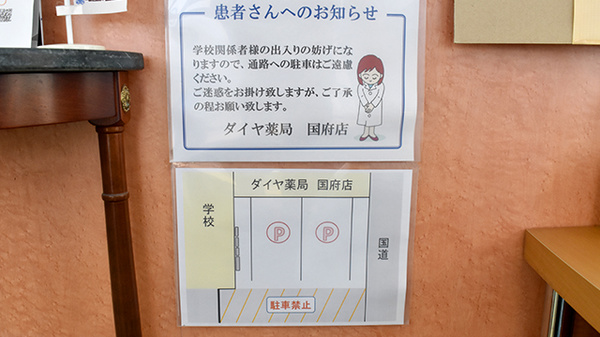 患者さんへのお知らせ
学校関係者様の出入りの妨げにな
りますので、通路への駐車はご遠慮
ください。
ご迷惑をお掛け致しますが、ご了承
の程お願い致します。
ダイヤ薬局 国府店
ダイヤ薬局 国府店
学校
P
P
国道
駐車禁止